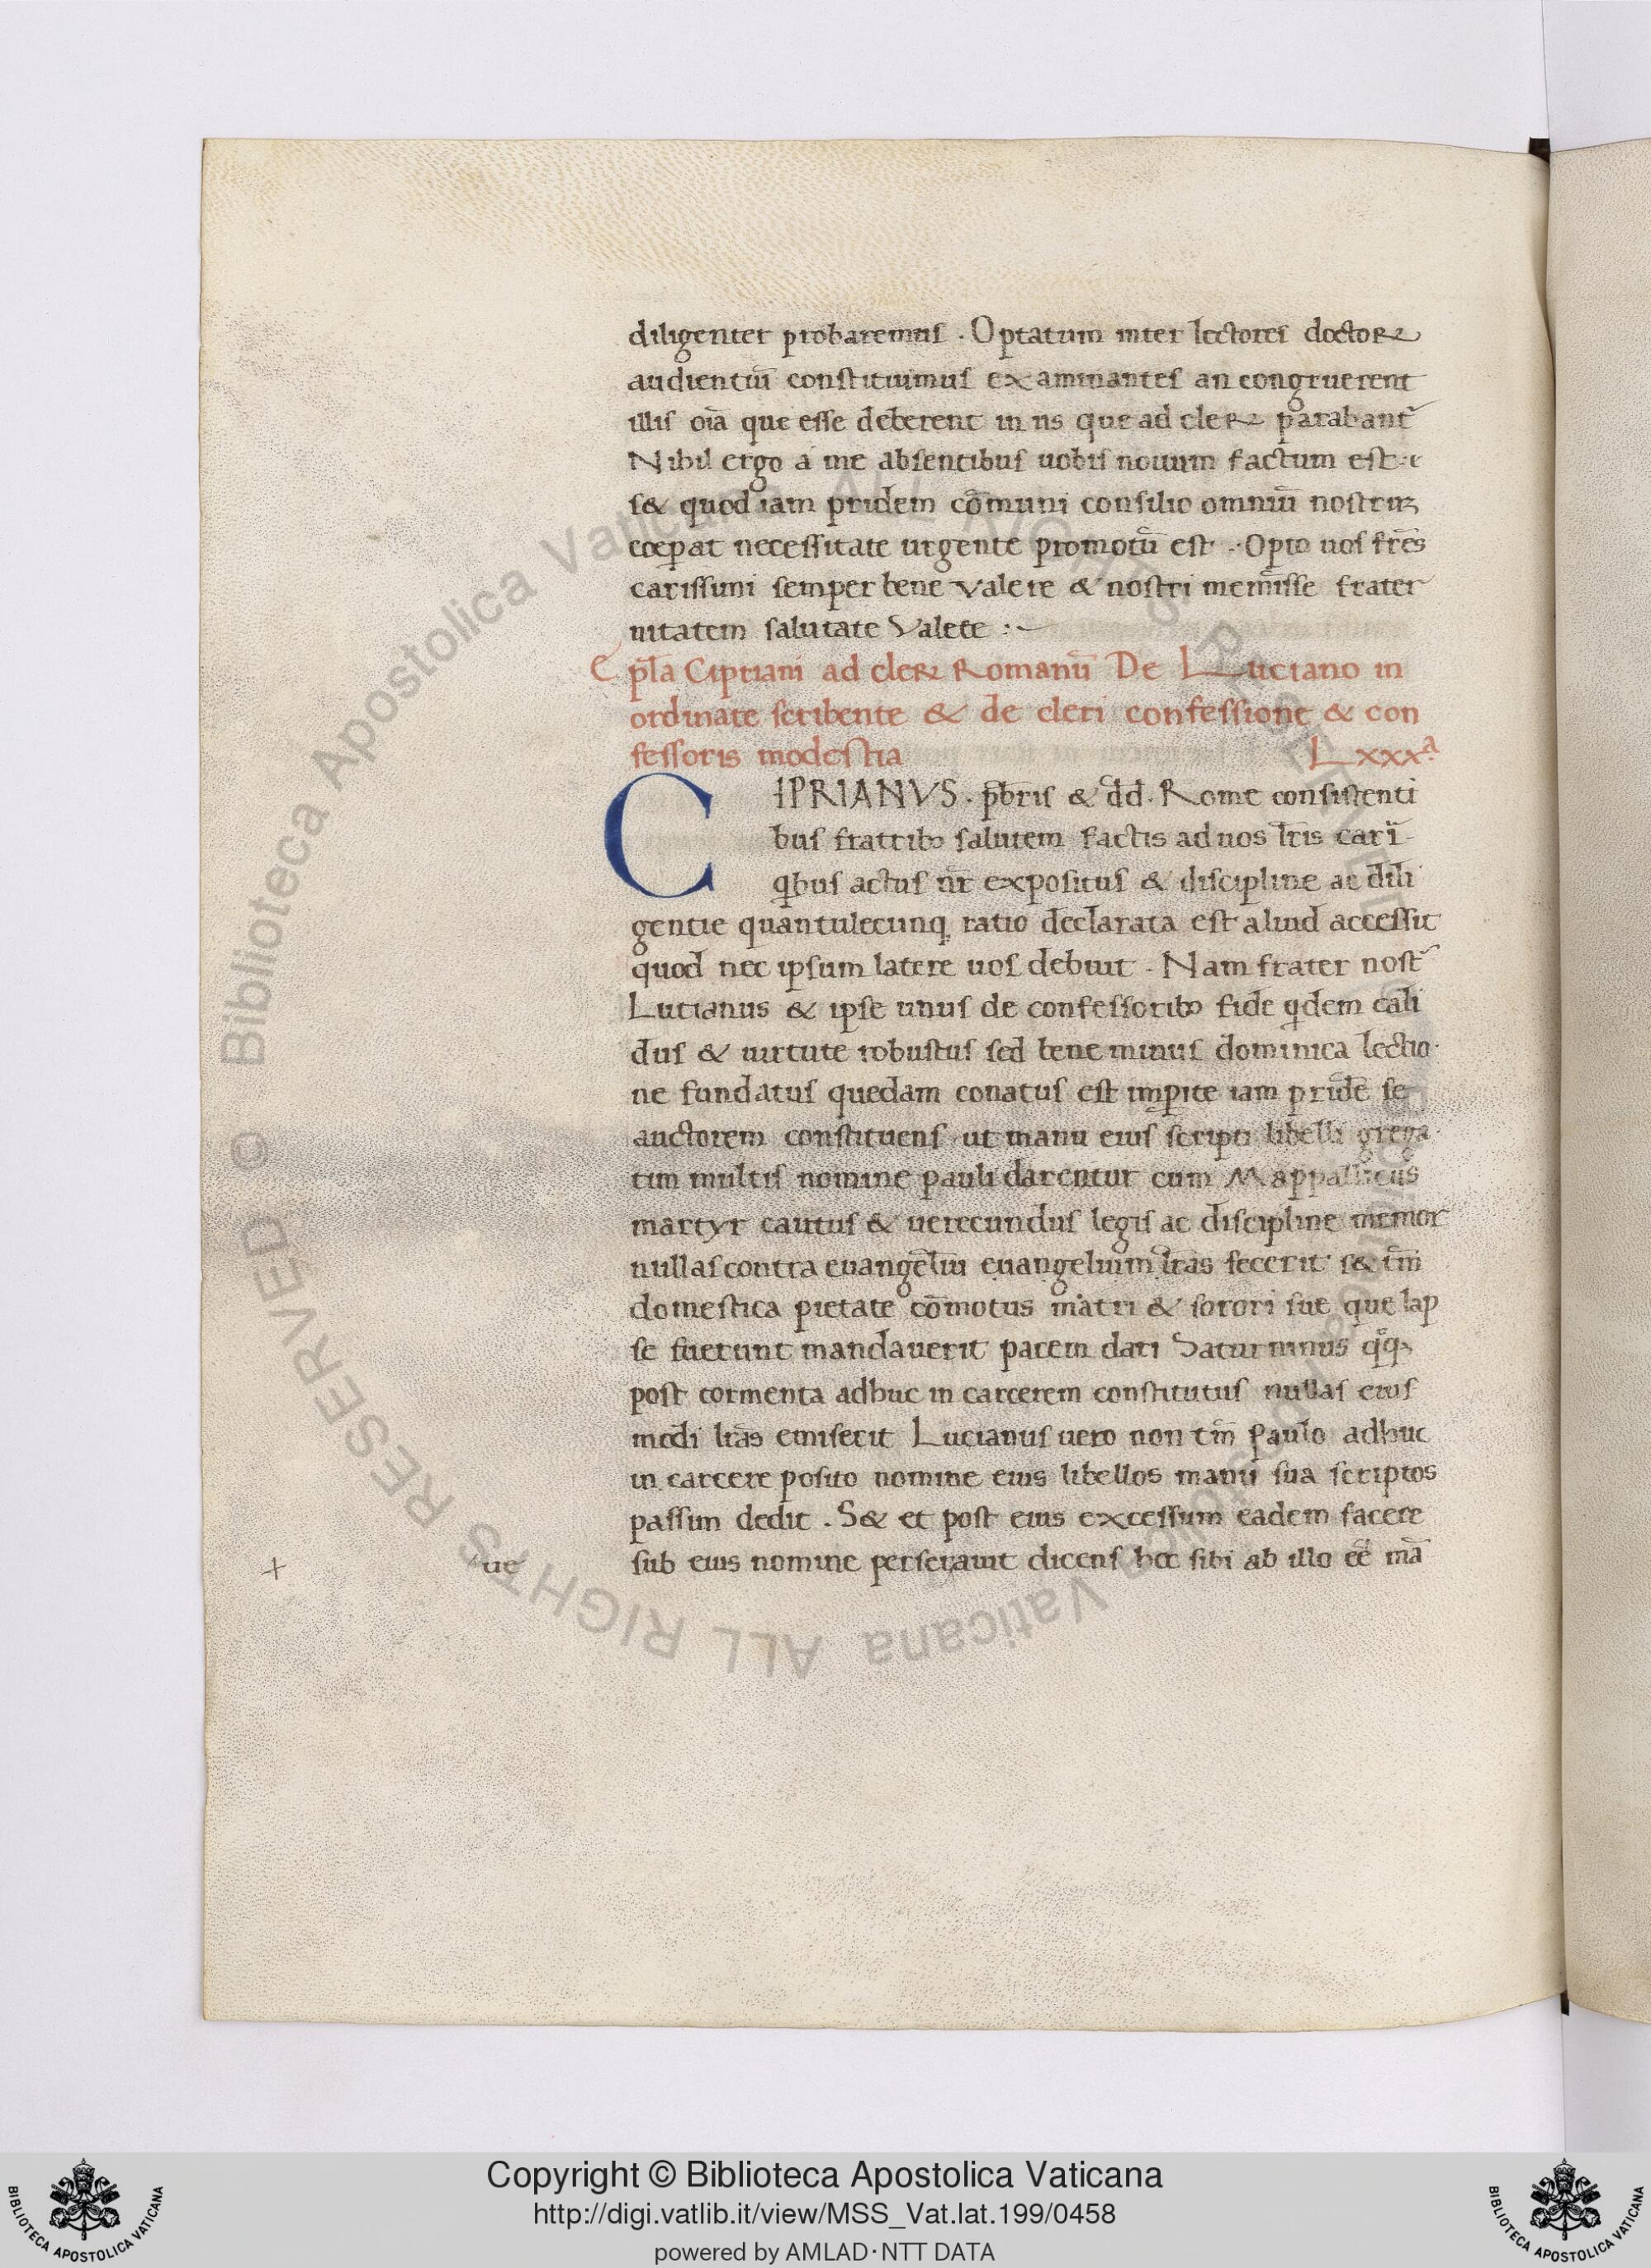 diligenter probaremus · Optatum inter lectores doctoꝝ
audientiū constituimus examinantes an congruerent
illis oīa que esse deberent in iis que ad cleꝝ parabant᷒
Nihil ergo a me absentibus uobis nouum factum est
s& quod iam pridem cōmuni consilio omniū nostrūꝫ
coeꝑat necessitate urgente promotū est · Opto uos fr̄es
carissimi semper bene valere & nostri meminisse frater
nitatem salutate Valete :~
Ep̄la Cipriani ad cleꝝ Romanū De Luciano in
ordinate scribente & de cleri confessione & con
fessoris modestia Lxxxª.
CIPRIANVS · p̄bris & dd̄. Rome consistenti
bus fratribꝰ salutem factis ad uos lr̄is carī
qͥbus actus nr̄ expositus & discipline ac dili
gentie quantulecunqꝫ ratio declarata est aliud accessit
quod nec ipsum latere uos debuit · Nam frater nost᷒
Lucianus & ipse unus de confessoribꝰ fide qͥdem cali
dus & uirtute robustus sed bene minus dominica lectio
ne fundatus quedam conatus est imꝑite iam pridē se
auctorem constituens ut manu eius scripti libelli grega
tim multis nomine pauli darentur cum Mappallicus
martyr cautus & uerecundus legis ac discipline memor
nullas contra euangēliū euangelium lr̄as fecerit s& tm̄
domestica pietate cōmotus matri & sorori sue que lap
se fuerunt mandauerit pacem dari Saturninus qͦqꝫ
post tormenta adhuc in carcerem constitutus nullas eius
modi lr̄as emiserit Lucianus uero non tm̄ Paulo adhuc
in carcere posito nomine eius libellos manu sua scriptos
passim dedit . S& et post eius excessum eadem facere
+ ue sub eius nomine perserauit dicens hoc sibi ab illo eē mā
Copyright © Biblioteca Apostolica Vaticana
http://digi.vatlib.it/view/MSS_Vat.lat.199/0458
powered by AMLAD·NTT DATA
BIBLIOTECA APOSTOLICA VATICANA
BIBLIOTECA APOSTOLICA VATICANA
© Biblioteca Apostolica Vaticana ALL RIGHTS RESERVED